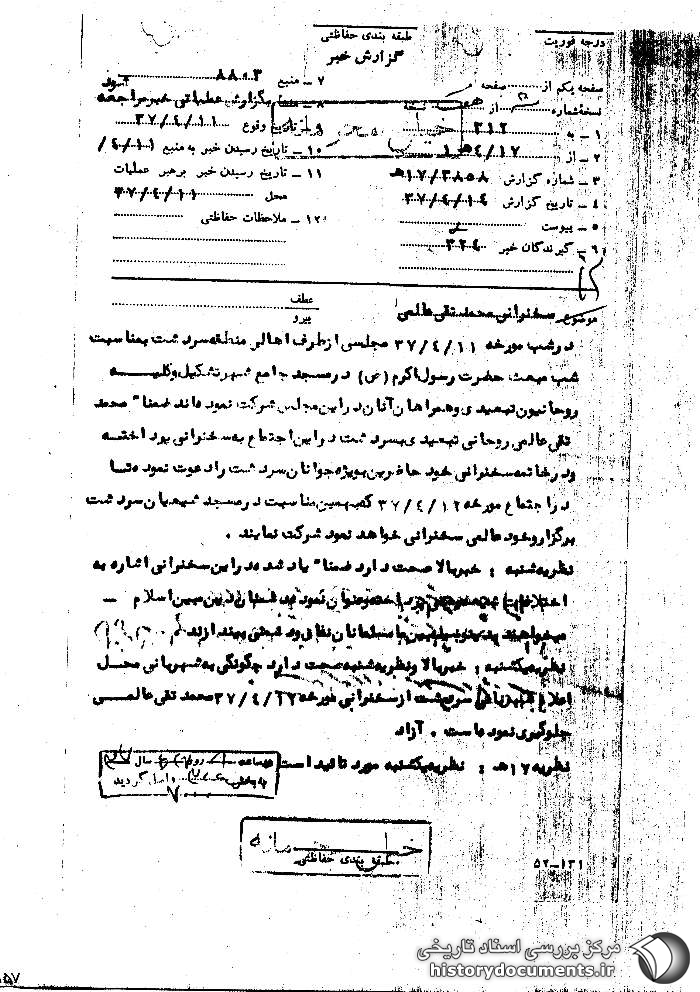 طبقه بندی حفاظتی
درجه فوریت
گزارش خبر
صفحه یکم از صفحه
نسخه شماره از
۱ – به ۳۱۲
۲ – از ۱۷/ه‍ ۱
۳ – شماره گزارش ۳۸۵۸/۱۷ه‍
۴ – تاریخ گزارش ۳۷/۴/۱۴
۵ – پیوست
۶ – گیرندگان خبر ۳۲۴
۷ – منبع ۸۸۰۳
۸ – بگزارش عملیاتی خبر مراجعه
۹ – تاریخ وقوع ۳۷/۴/۱۱
۱۰ – تاریخ رسیدن خبر به منبع ۱۱/۴/
۱۱ – تاریخ رسیدن خبر برهبر عملیات
محل ۳۷/۴/۱۱
۱۲ – ملاحظات حفاظتی
عطف
پیرو
موضوع سخنرانی محمد تقی عالمی
در شب مورخه ۳۷/۴/۱۱ مجلسی از طرف اهالی منطقه سردشت بمناسبت
شب مبعث حضرت رسول اکرم (ص) در مسجد جامع شهر تشکیل و کلیه
روحانیون تبعیدی و همراهان آنان در این مجلس شرکت نموده اند ضمنا" محمد
تقی عالمی روحانی تبعیدی بسردشت در این اجتماع به سخنرانی پرداخته
و در خاتمه سخنرانی خود حاضرین بویژه جوانان سردشت را دعوت نموده تا
در اجتماع مورخه ۳۷/۴/۱۲ که بهمین مناسبت در مسجد شیعیان سردشت
برگزار و خود عالمی سخنرانی خواهد نمود شرکت نمایند .
نظریه شنبه : خبر بالا صحت دارد ضمنا" یاد شده در این سخنرانی اشاره به
نموده دشمنان دین مبین اسلام –
میخواهند بین مسلمانان نفاق و دشمنی بیندازند
نظریه یکشنبه : خبر بالا و نظریه شنبه صحت دارد چگونگی به شهربانی محل
اعلام سردشت از سخنرانی مورخه ۳۷/۴/۱۲ محمد تقی عالمی
جلوگیری نموده است . آزاد
نظریه ۱۷ه‍ : نظریه یکشنبه مورد تائید است
در ساعت روز سال
به بخش واصل گردید
طبقه بندی حفاظتی
۵۲–۱۳۱
مرکز بررسی اسناد تاریخی
historydocuments.ir